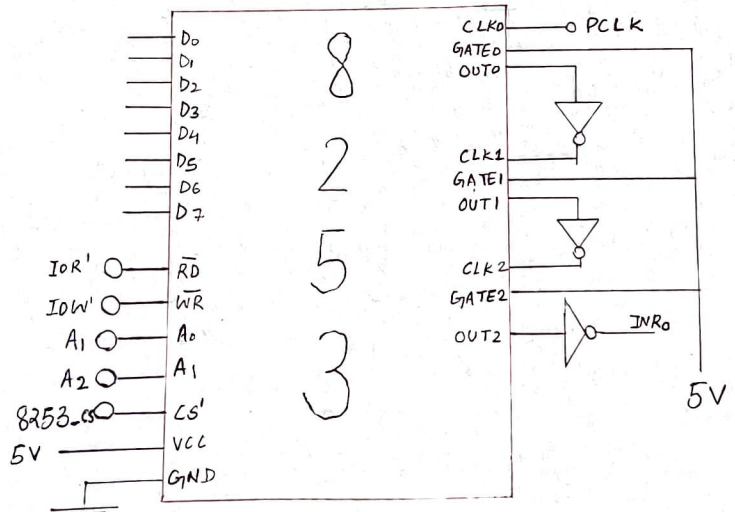 D0
D1
D2
D3
D4
D5
D6
D7
IOR' RD
IOW' WR
A1 A0
A2 A1
8253_CS CS'
5V VCC
GND
8
2
5
3
CLK0 PCLK
GATE0
OUT0
CLK1
GATE1
OUT1
CLK2
GATE2
OUT2 INR0
5V